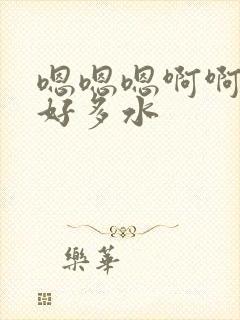 嗯嗯嗯啊啊
好多水
樂華